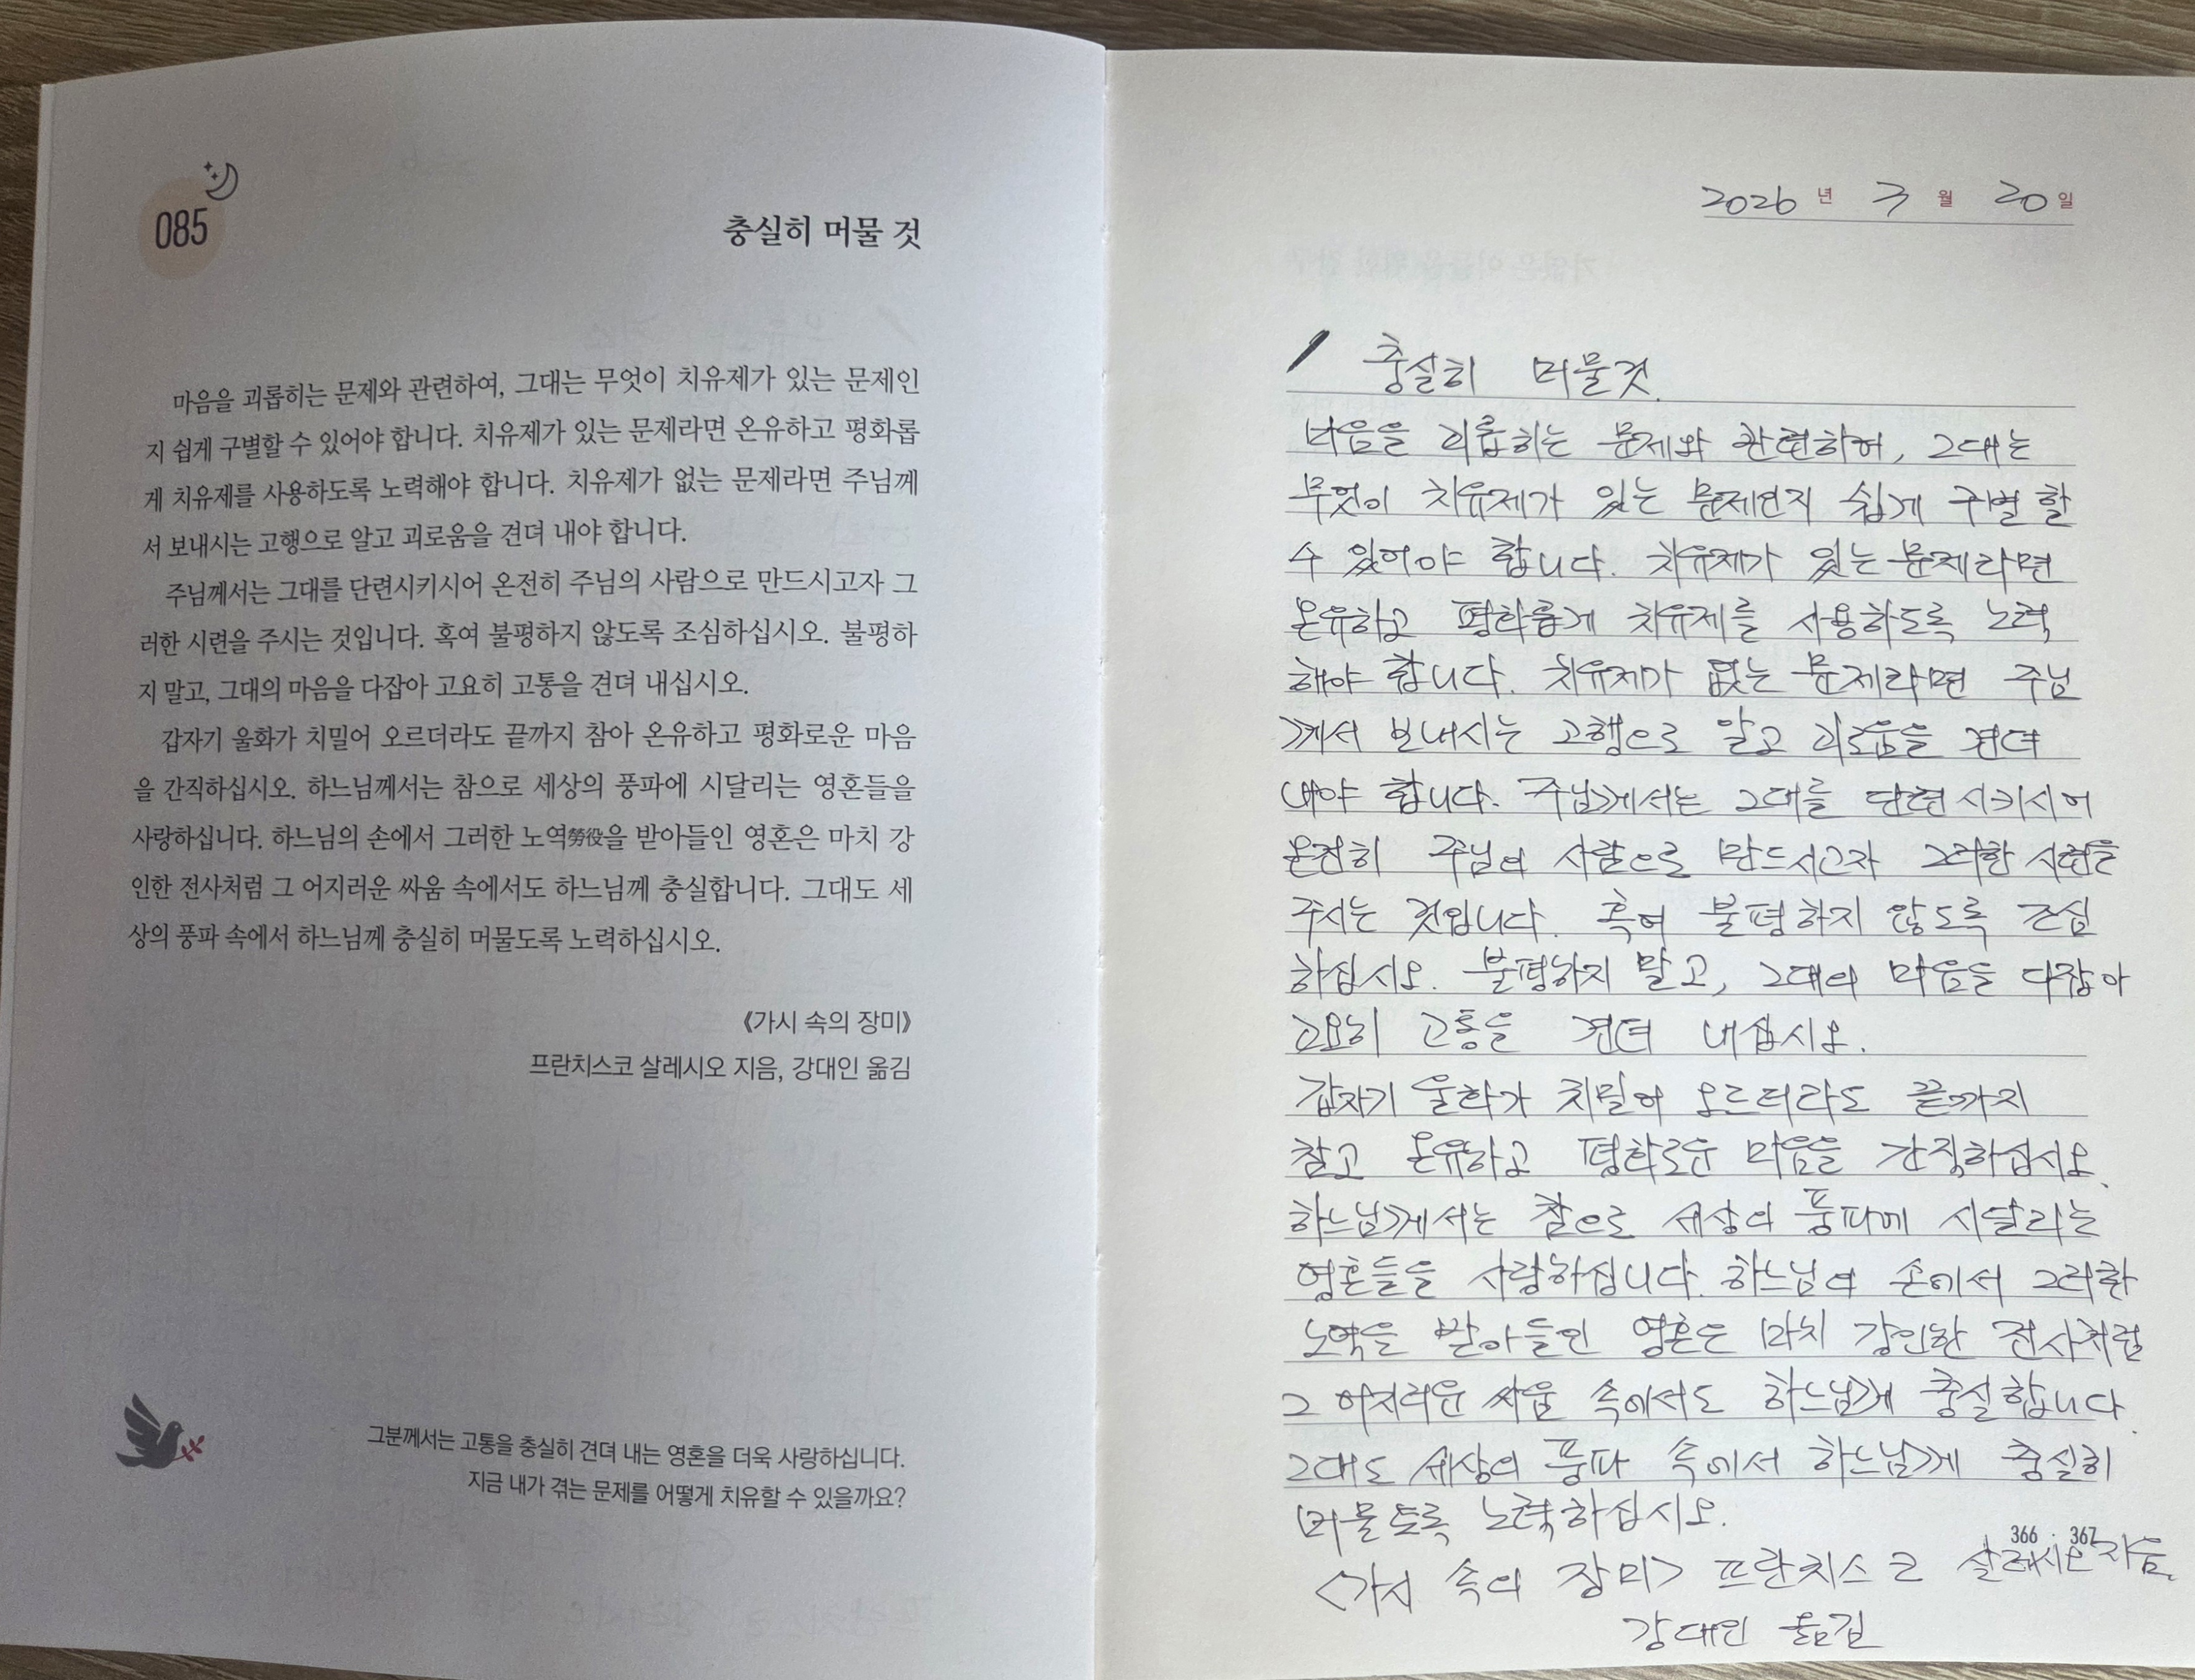 085
충실히 머물 것
마음을 괴롭히는 문제와 관련하여, 그대는 무엇이 치유제가 있는 문제인
지 쉽게 구별할 수 있어야 합니다. 치유제가 있는 문제라면 온유하고 평화롭
게 치유제를 사용하도록 노력해야 합니다. 치유제가 없는 문제라면 주님께
서 보내시는 고행으로 알고 괴로움을 견뎌 내야 합니다.
주님께서는 그대를 단련시키시어 온전히 주님의 사람으로 만드시고자 그
러한 시련을 주시는 것입니다. 혹여 불평하지 않도록 조심하십시오. 불평하
지 말고, 그대의 마음을 다잡아 고요히 고통을 견뎌 내십시오.
갑자기 울화가 치밀어 오르더라도 끝까지 참아 온유하고 평화로운 마음
을 간직하십시오. 하느님께서는 참으로 세상의 풍파에 시달리는 영혼들을
사랑하십니다. 하느님의 손에서 그러한 노역勞役을 받아들인 영혼은 마치 강
인한 전사처럼 그 어지러운 싸움 속에서도 하느님께 충실합니다. 그대도 세
상의 풍파 속에서 하느님께 충실히 머물도록 노력하십시오.
《가시 속의 장미》
프란치스코 살레시오 지음, 강대인 옮김
그분께서는 고통을 충실히 견뎌 내는 영혼을 더욱 사랑하십니다.
지금 내가 겪는 문제를 어떻게 치유할 수 있을까요?
2026 년 3 월 20 일
충실히 머물것.
마음을 괴롭히는 문제와 관련하여, 그대는
무엇이 치유제가 있는 문제인지 쉽게 구별 할
수 있어야 합니다. 치유제가 있는 문제라면
온유하고 평화롭게 치유제를 사용하도록 노력
해야 합니다. 치유제가 없는 문제라면 주님
께서 보내시는 고행으로 알고 괴로움을 견뎌
내야 합니다. 주님께서는 그대를 단련시키시어
온전히 주님의 사람으로 만드시고자 그러한 시련을
주시는 것입니다. 혹여 불평하지 않도록 조심
하십시오. 불평하지 말고, 그대의 마음을 다잡아
고요히 고통을 견뎌 내십시오.
갑자기 울화가 치밀어 오르더라도 끝까지
참고 온유하고 평화로운 마음을 간직하십시오.
하느님께서는 참으로 세상의 풍파에 시달리는
영혼들을 사랑하십니다. 하느님의 손에서 그러한
노역을 받아들인 영혼은 마치 강인한 전사처럼
그 어지러운 싸움 속에서도 하느님께 충실합니다.
그대도 세상의 풍파 속에서 하느님께 충실히
머물도록 노력하십시오.
366 · 367
<가시 속의 장미> 프란치스코 살레시오 지음,
강대인 옮김